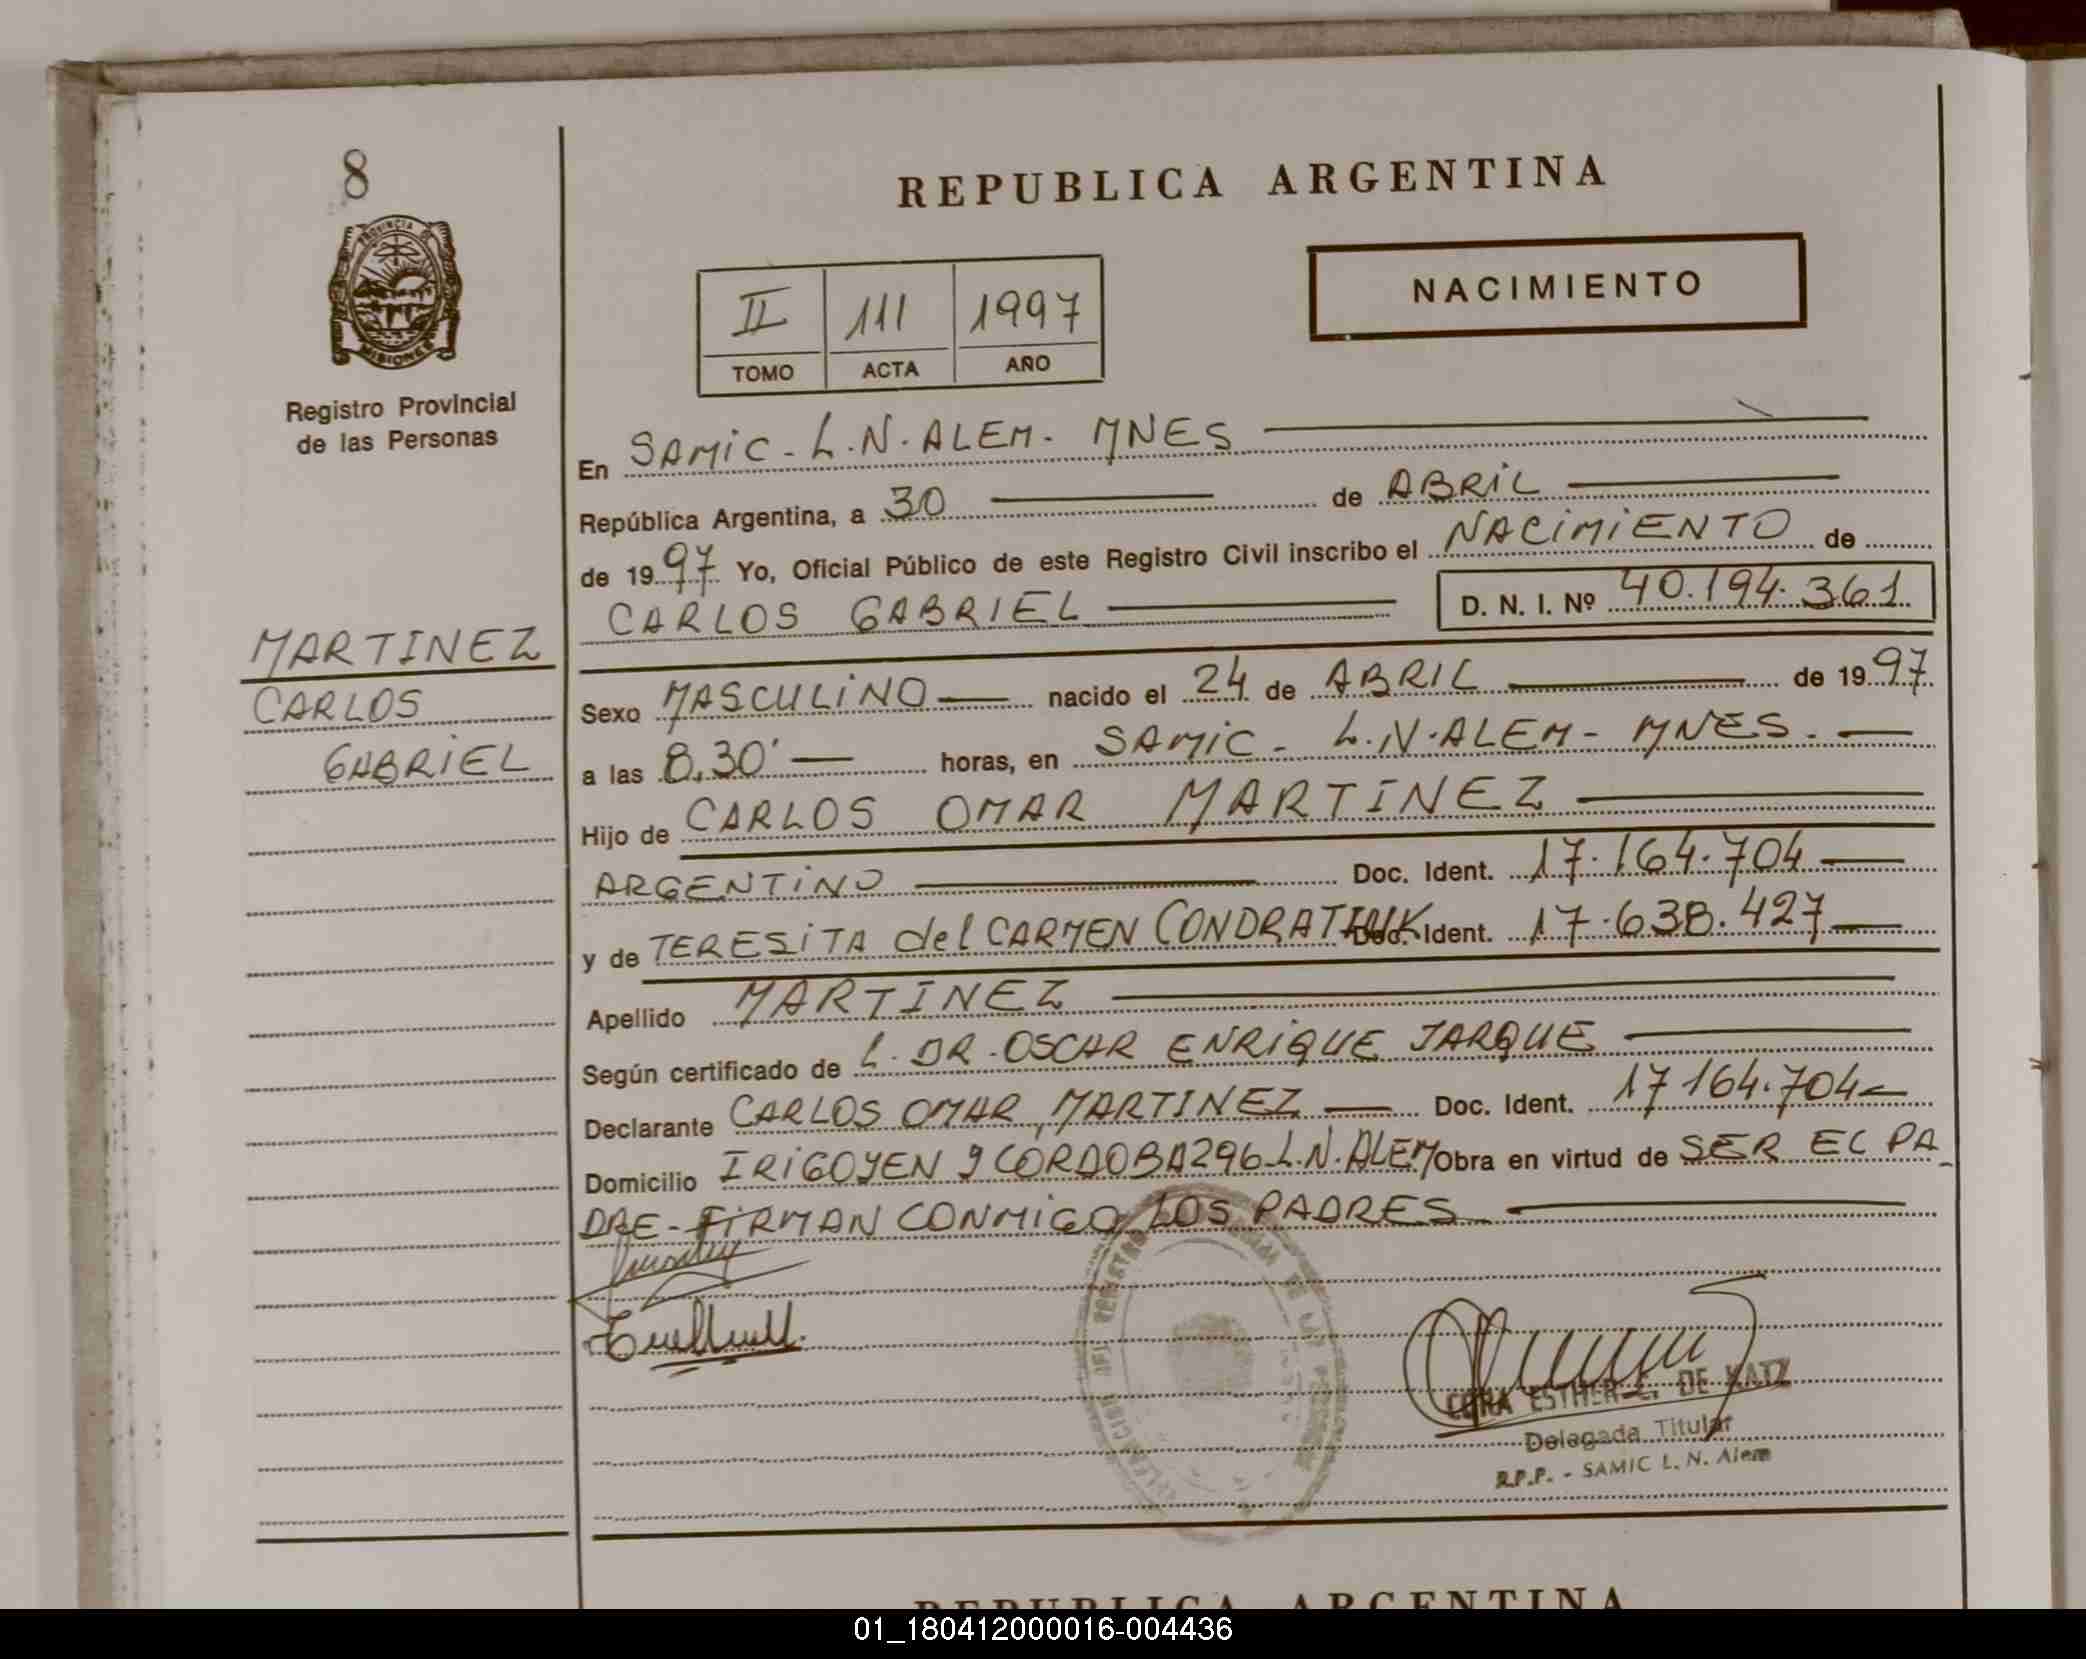 8
REPUBLICA ARGENTINA
PROVINCIA DE
MISIONES
NACIMIENTO
II 111 1997
TOMO ACTA AÑO
Registro Provincial
de las Personas
En SAMIC - L.N. ALEM - MNES
República Argentina, a 30 de ABRIL
de 1997 Yo, Oficial Público de este Registro Civil inscribo el NACIMIENTO de
CARLOS GABRIEL D. N. I. Nº 40.194.361
MARTINEZ
CARLOS
GABRIEL
Sexo MASCULINO nacido el 24 de ABRIL de 1997
a las 8,30' horas, en SAMIC - L.N. ALEM - MNES.
Hijo de CARLOS OMAR MARTINEZ
ARGENTINO Doc. Ident. 17.164.704
y de TERESITA del CARMEN Doc. Ident. 17.638.427
Apellido MARTINEZ
Según certificado de L. DR. OSCAR ENRIQUE JARQUE
Declarante CARLOS OMAR MARTINEZ Doc. Ident. 17 164.704
Domicilio IRIGOYEN y CORDOBA 296 L.N. ALEM Obra en virtud de SER EL PA_
DRE - FIRMAN CONMIGO LOS PADRES
ESTHER DE KATZ
Delegada Titular
R.P.P. - SAMIC L. N. Alem
REPUBLICA ARGENTINA
01_180412000016-004436